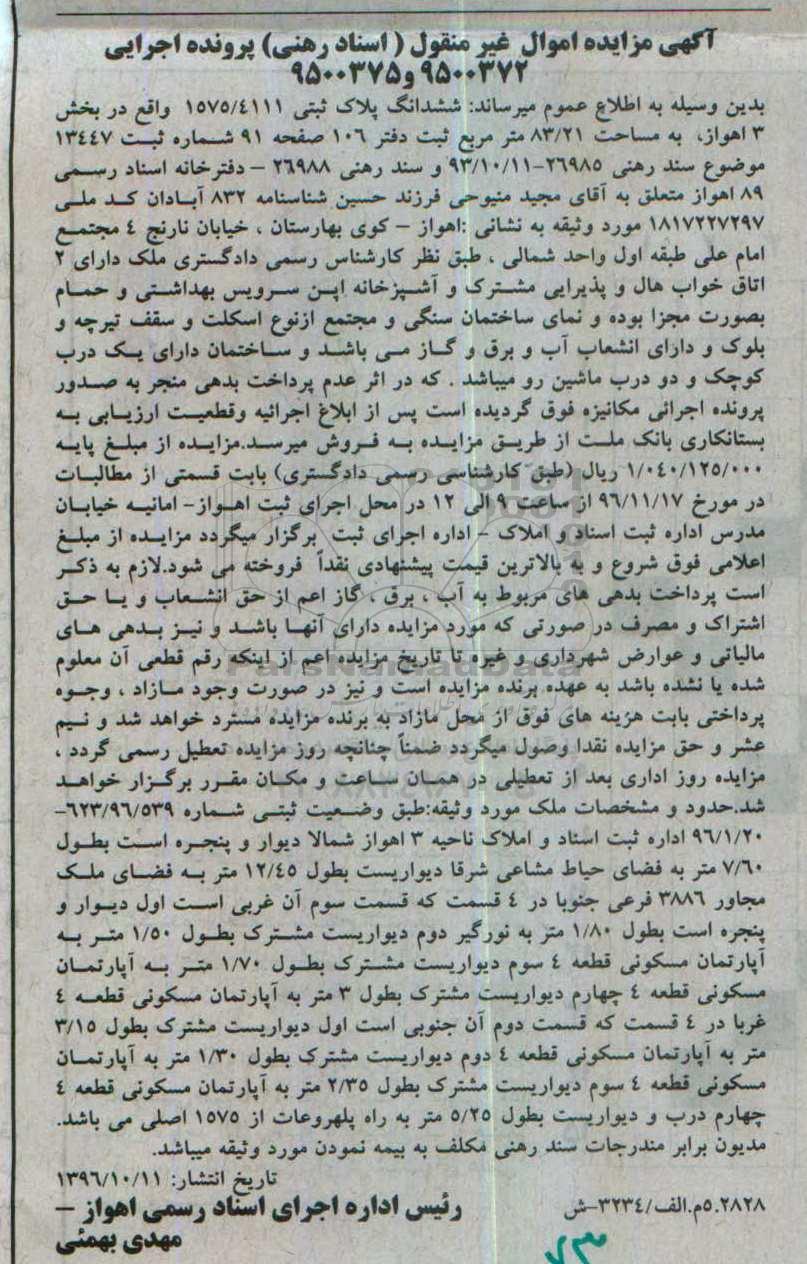 آگهی مزایده اموال غیر منقول (اسناد رهنی) پرونده اجرایی
۹۵۰۰۳۷۲ و ۹۵۰۰۳۷۵
بدین وسیله به اطلاع عموم میرساند: ششدانگ پلاک ثبتی ۱۵۷۵/٤۱۱۱ واقع در بخش
۳ اهواز، به مساحت ۸۳/۲۱ متر مربع ثبت دفتر ۱۰٦ صفحه ۹۱ شماره ثبت ۱۳٤٤۷
موضوع سند رهنی ۲٦۹۸۵-۹۳/۱۰/۱۱ و سند رهنی ۲٦۹۸۸ – دفترخانه اسناد رسمی
۸۹ اهواز متعلق به آقای مجید منیوحی فرزند حسین شناسنامه ۸۳۲ آبادان کد ملی
۱۸۱۷۲۲۷۲۹۷ مورد وثیقه به نشانی :اهواز – کوی بهارستان ، خیابان نارنج ٤ مجتمع
امام علی طبقه اول واحد شمالی ، طبق نظر کارشناس رسمی دادگستری ملک دارای ۲
اتاق خواب هال و پذیرایی مشترک و آشپزخانه اپن سرویس بهداشتی و حمام
بصورت مجزا بوده و نمای ساختمان سنگی و مجتمع ازنوع اسکلت و سقف تیرچه و
بلوک و دارای انشعاب آب و برق و گاز می باشد و ساختمان دارای یک درب
کوچک و دو درب ماشین رو میباشد . که در اثر عدم پرداخت بدهی منجر به صدور
پرونده اجرائی مکانیزه فوق گردیده است پس از ابلاغ اجرائیه وقطعیت ارزیابی به
بستانکاری بانک ملت از طریق مزایده به فروش میرسد.مزایده از مبلغ پایه
۱/۰٤۰/۱۲۵/۰۰۰ ریال (طبق کارشناسی رسمی دادگستری) بابت قسمتی از مطالبات
در مورخ ۹٦/۱۱/۱۷ از ساعت ۹ الی ۱۲ در محل اجرای ثبت اهواز- امانیه خیابان
مدرس اداره ثبت اسناد و املاک – اداره اجرای ثبت برگزار میگردد مزایده از مبلغ
اعلامی فوق شروع و به بالاترین قیمت پیشنهادی نقداً فروخته می شود.لازم به ذکر
است پرداخت بدهی های مربوط به آب ، برق ، گاز اعم از حق انشعاب و یا حق
اشتراک و مصرف در صورتی که مورد مزایده دارای آنها باشد و نیز بدهی های
مالیاتی و عوارض شهرداری و غیره تا تاریخ مزایده اعم از اینکه رقم قطعی آن معلوم
شده یا نشده باشد به عهده برنده مزایده است و نیز در صورت وجود مازاد ، وجوه
پرداختی بابت هزینه های فوق از محل مازاد به برنده مزایده مسترد خواهد شد و نیم
عشر و حق مزایده نقدا وصول میگردد ضمناً چنانچه روز مزایده تعطیل رسمی گردد ،
مزایده روز اداری بعد از تعطیلی در همان ساعت و مکان مقرر برگزار خواهد
شد.حدود و مشخصات ملک مورد وثیقه:طبق وضعیت ثبتی شماره ٦۲۳/۹٦/۵۳۹-
۹٦/۱/۲۰ اداره ثبت اسناد و املاک ناحیه ۳ اهواز شمالا دیوار و پنجره است بطول
۷/٦۰ متر به فضای حیاط مشاعی شرقا دیواریست بطول ۱۲/٤۵ متر به فضای ملک
مجاور ۳۸۸٦ فرعی جنوبا در ٤ قسمت که قسمت سوم آن غربی است اول دیوار و
پنجره است بطول ۱/۸۰ متر به نورگیر دوم دیواریست مشترک بطول ۱/۵۰ متر به
آپارتمان مسکونی قطعه ٤ سوم دیواریست مشترک بطول ۱/۷۰ متر به آپارتمان
مسکونی قطعه ٤ چهارم دیواریست مشترک بطول ۳ متر به آپارتمان مسکونی قطعه ٤
غربا در ٤ قسمت که قسمت دوم آن جنوبی است اول دیواریست مشترک بطول ۳/۱۵
متر به آپارتمان مسکونی قطعه ٤ دوم دیواریست مشترک بطول ۱/۳۰ متر به آپارتمان
مسکونی قطعه ٤ سوم دیواریست مشترک بطول ۲/۳۵ متر به آپارتمان مسکونی قطعه ٤
چهارم درب و دیواریست بطول ۵/۲۵ متر به راه پلهروعات از ۱۵۷۵ اصلی می باشد.
مدیون برابر مندرجات سند رهنی مکلف به بیمه نمودن مورد وثیقه میباشد.
تاریخ انتشار: ۱۳۹٦/۱۰/۱۱
۵.۲۸۲۸م.الف/۳۲۳٤-ش
رئیس اداره اجرای اسناد رسمی اهواز –
مهدی بهمئی
۷۳